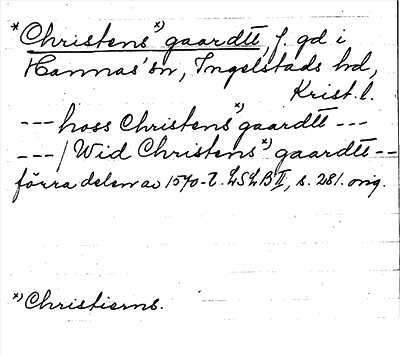 * Christens*) gaardtt, f. gd i
Hannas' sn, Ingelstads hd,
Krist. l.
--- hoss Christens*) gaardtt ---
--- / Wid Christens*) gaardtt --
förra delen av 1570-t. LSLB II, s. 281. orig.
*) Christierns.